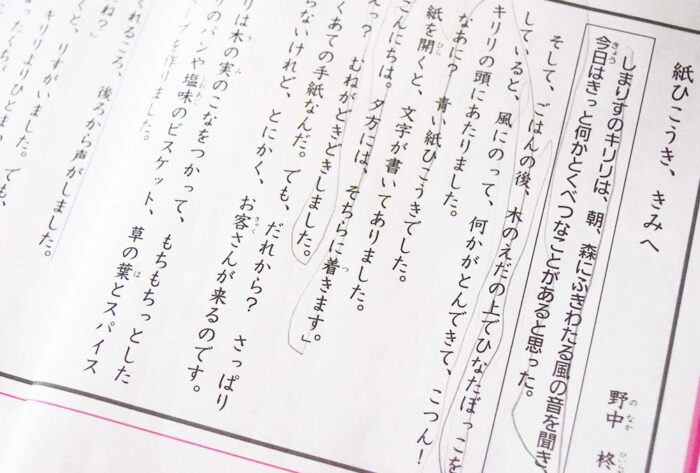 紙ひこうき、きみへ
野中 柊
しまりすのキリリは、朝、森にふきわたる風の音を聞き、
今日はきっと何かとくべつなことがあると思った。
そして、ごはんの後、木のえだの上でひなたぼっこを
していると、風にのって、何かがとんできて、こつん！
キリリの頭にあたりました。
なあに？ 青い紙ひこうきでした。
紙を開くと、文字が書いてありました。
こんにちは。夕方には、そちらに着きます。」
えっ？ むねがどきどきしました。
くあての手紙なんだ。でも、だれから？ さっぱり
らないけれど、とにかく、お客さんが来るのです。
リは木の実のこなをつかって、もちもちっとした
りのパンや塩味のビスケット、草の葉とスパイス
ープを作りました。
くれるころ、後ろから声がしました。
だね？」
くと、りすがいました。でも、
キリリよりひとま